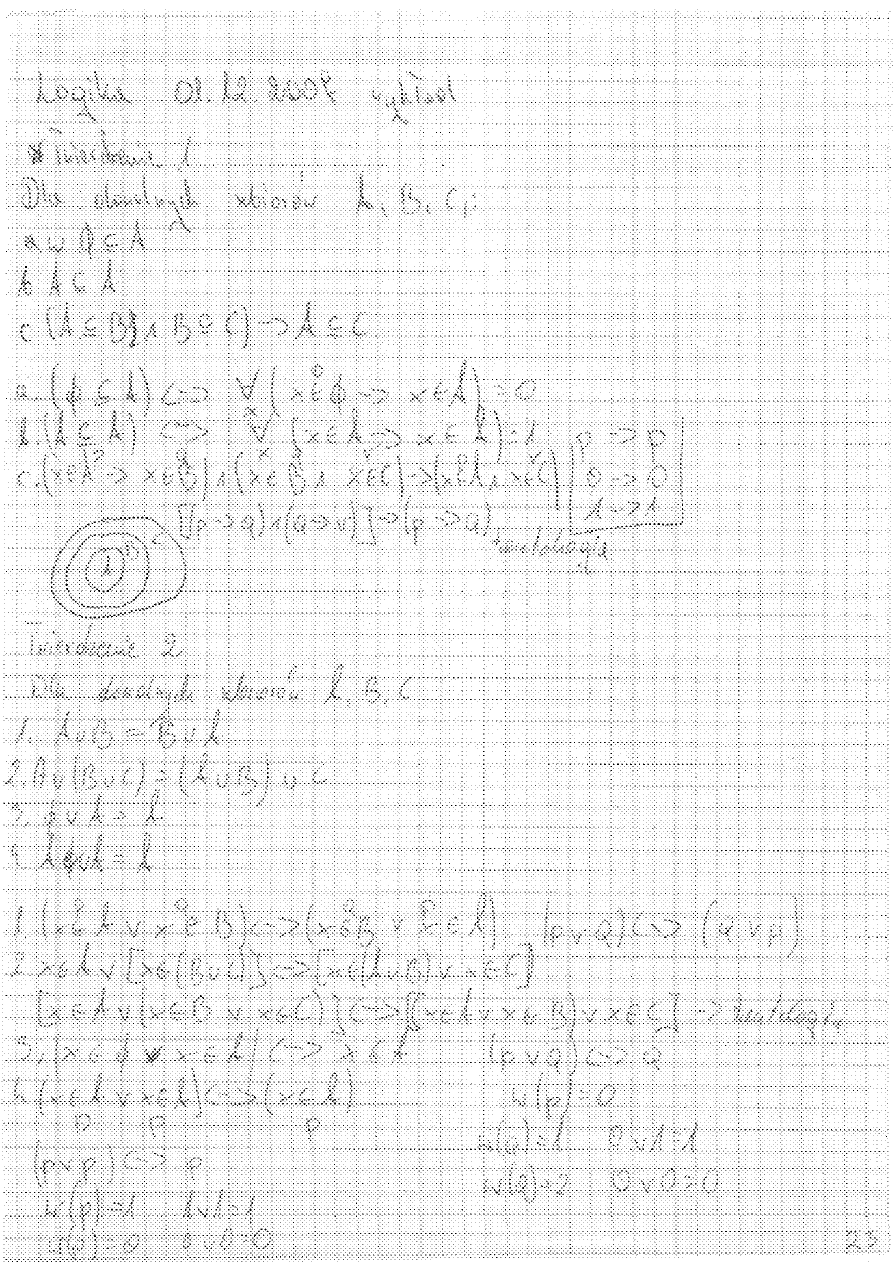 Logika 01.12.2007 wykład
* Twierdzenie 1
Dla dowolnych zbiorów A, B, C,:
a ∅ ⊆ A
b A ⊂ A
c (A ⊆ B) ∧ B ⊆ C) -> A ⊆ C
a. (ϕ ⊆ A) <-> ∀x (x ∈ ϕ -> x ∈ A) = 0
b. (A ⊆ A) <-> ∀x [x ∈ A -> x ∈ A) = 1 p -> p
c. (x ∈ A -> x ∈ B) ∧ (x ∈ B ∧ x ∈ C) -> (x ∈ A ∧ x ∈ C) 0 -> 0
1 -> 1
[(p -> q) ∧ (q -> r)] -> (p -> q) tautologia
A B C
Twierdzenie 2
Dla dowolnych zbiorów A, B, C
1. A ∪ B = B ∪ A
2. A ∪ (B ∪ C) = (A ∪ B) ∪ C
3. ϕ ∪ A = A
4. A ∪ A = A
1. (x ∈ A ∨ x ∈ B) <-> (x ∈ B ∨ x ∈ A) (p ∨ q) <-> (q ∨ p)
2. x ∈ A ∨ [x ∈ (B ∪ C)] <-> [x ∈ (A ∪ B) ∨ x ∈ C]
[x ∈ A ∨ (x ∈ B ∨ x ∈ C)] <-> [(x ∈ A ∨ x ∈ B) ∨ x ∈ C] -> tautologia
3. (x ∈ ϕ ∨ x ∈ A) <-> x ∈ A (p ∨ q) <-> q
4. (x ∈ A ∨ x ∈ A) <-> (x ∈ A) w(p) = 0
p p p
w(q) = 1 0 ∨ 1 = 1
(p ∨ p) <-> p
w(q) = 2 0 ∨ 0 = 0
w(p) = 1 1 ∨ 1 = 1
w(p) = 0 0 ∨ 0 = 0
23